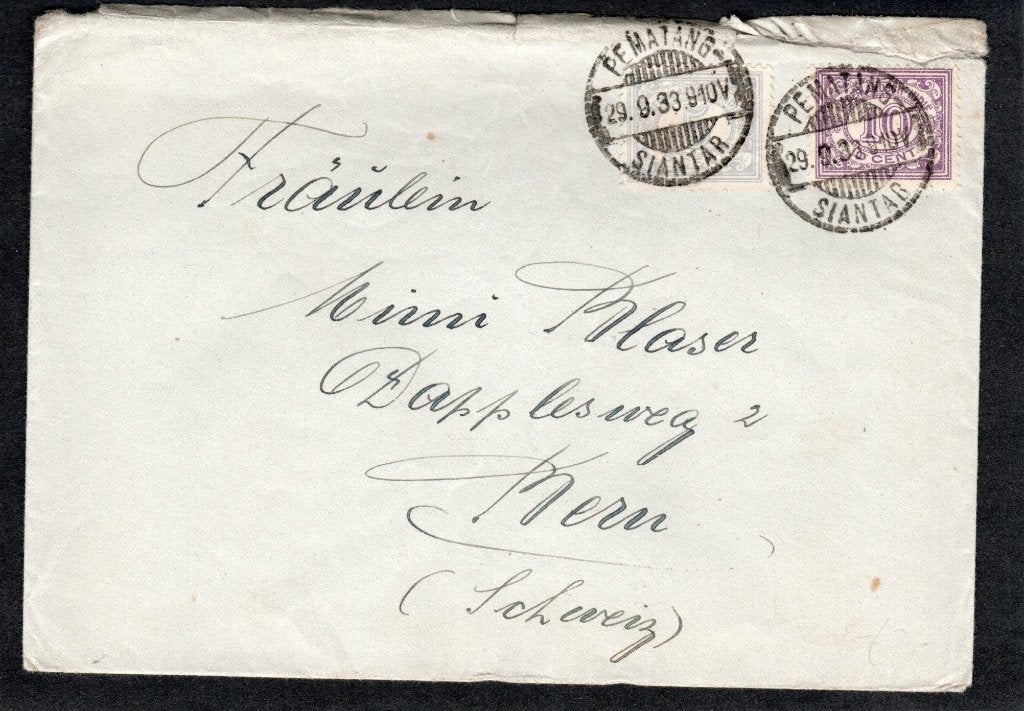 PEMATANG-
29.9.33.910V
SIANTAR
PEMATANG
29.9.33
SIANTAR
10
CENT
Fräulein
Mimi Blaser
Dapplesweg 2
Bern
(Schweiz)